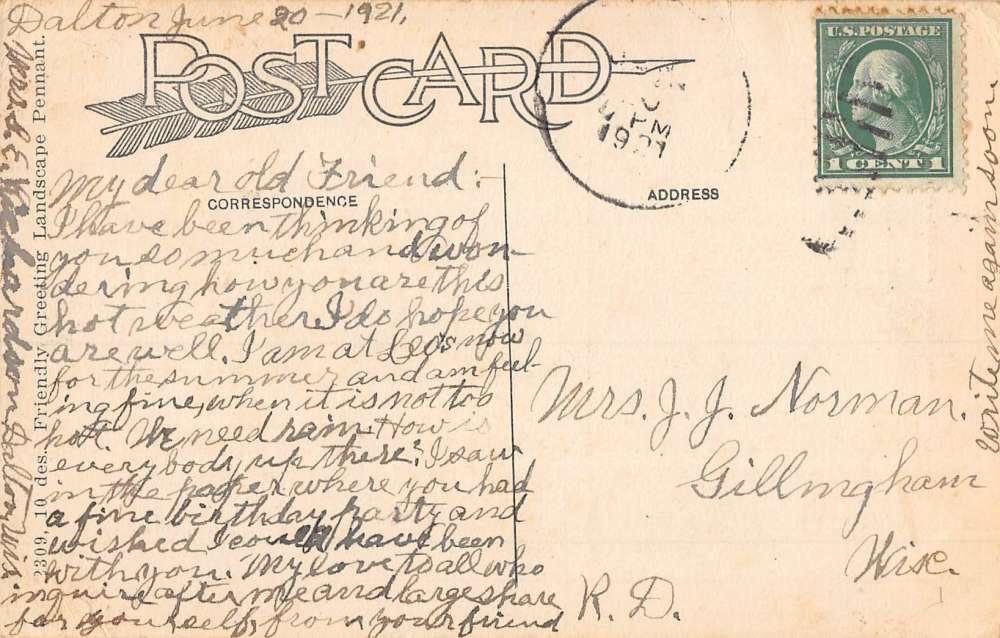 Dalton June 20 - 1921,
POST CARD
U.S. POSTAGE
1 CENT 1
1921
CORRESPONDENCE
ADDRESS
My dear old Friend:-
I have been thinking of
you so much and won-
dering how you are this
hot weather I do hope you
are well. I am at Leo's now
for the summer and am feel-
ing fine, when it is not too
hot. We need rain. How is
everybody up there? I saw
in the paper where you had
a fine birthday party and
wished I could have been
with you. My love to all who
inquire after me and large share
for yourself, from your friend
Mrs. L. E. Richardson Dalton, Wis.
2309. 10 des. Friendly Greeting Landscape Pennant.
Mrs. J. J. Norman.
Gillingham
Wisc.
R. D.
write me again soon.